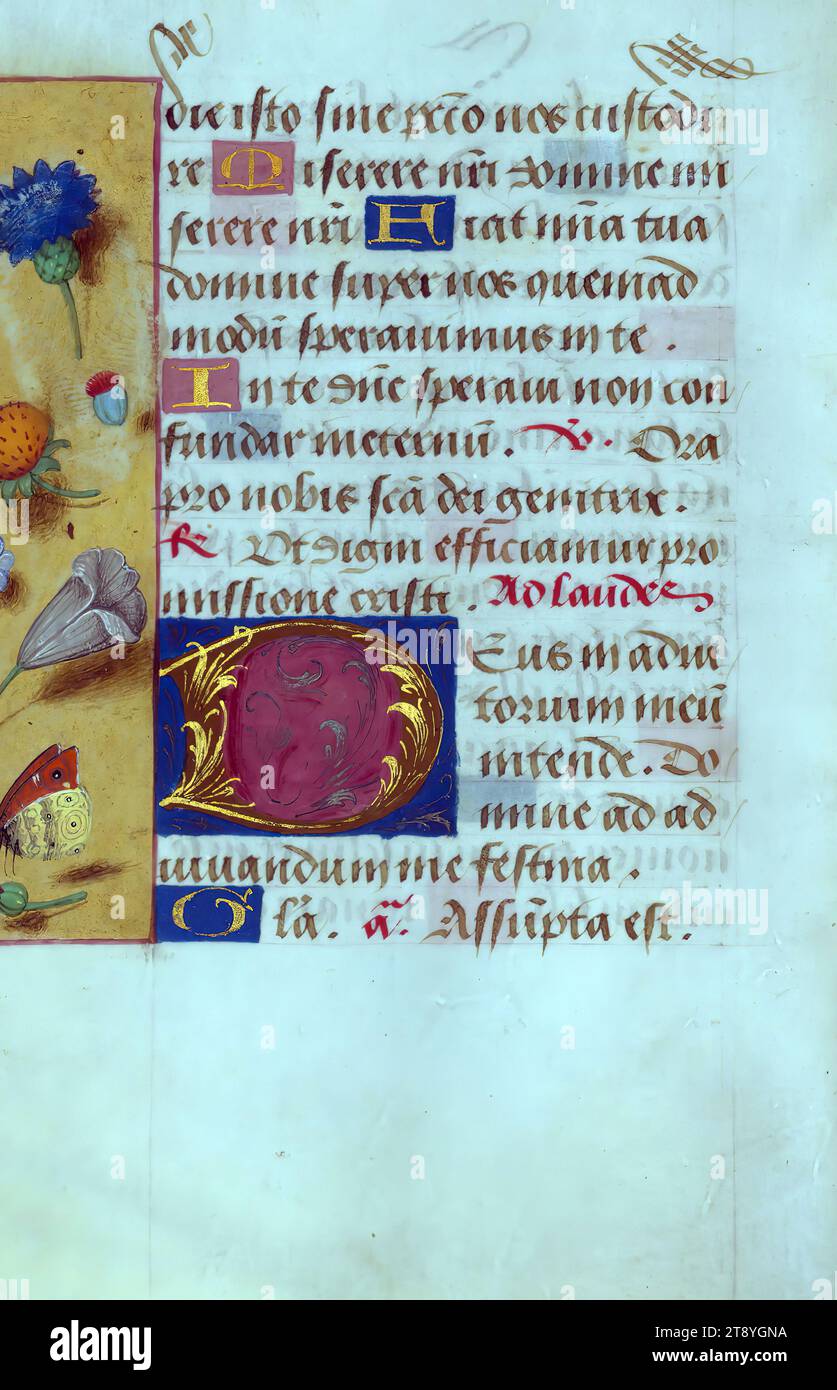 die isto sine pctō nos custodi
re Miserere nr̄i domine mi
serere nr̄i Fiat mīa tua
domine super nos quemad
modū speravimus in te .
In te dñe speravi non con
fundar in eternū . V. Ora
pro nobis scā dei genitrix .
R Ut digni efficiamur pro
missione cristi . Ad laudes
Deus in adiu
torium meū
intende . Do
mine ad ad
iuvandum me festina .
Glā . añ. Assūpta est .
alamy
Image ID: 2T8YGNA
www.alamy.com